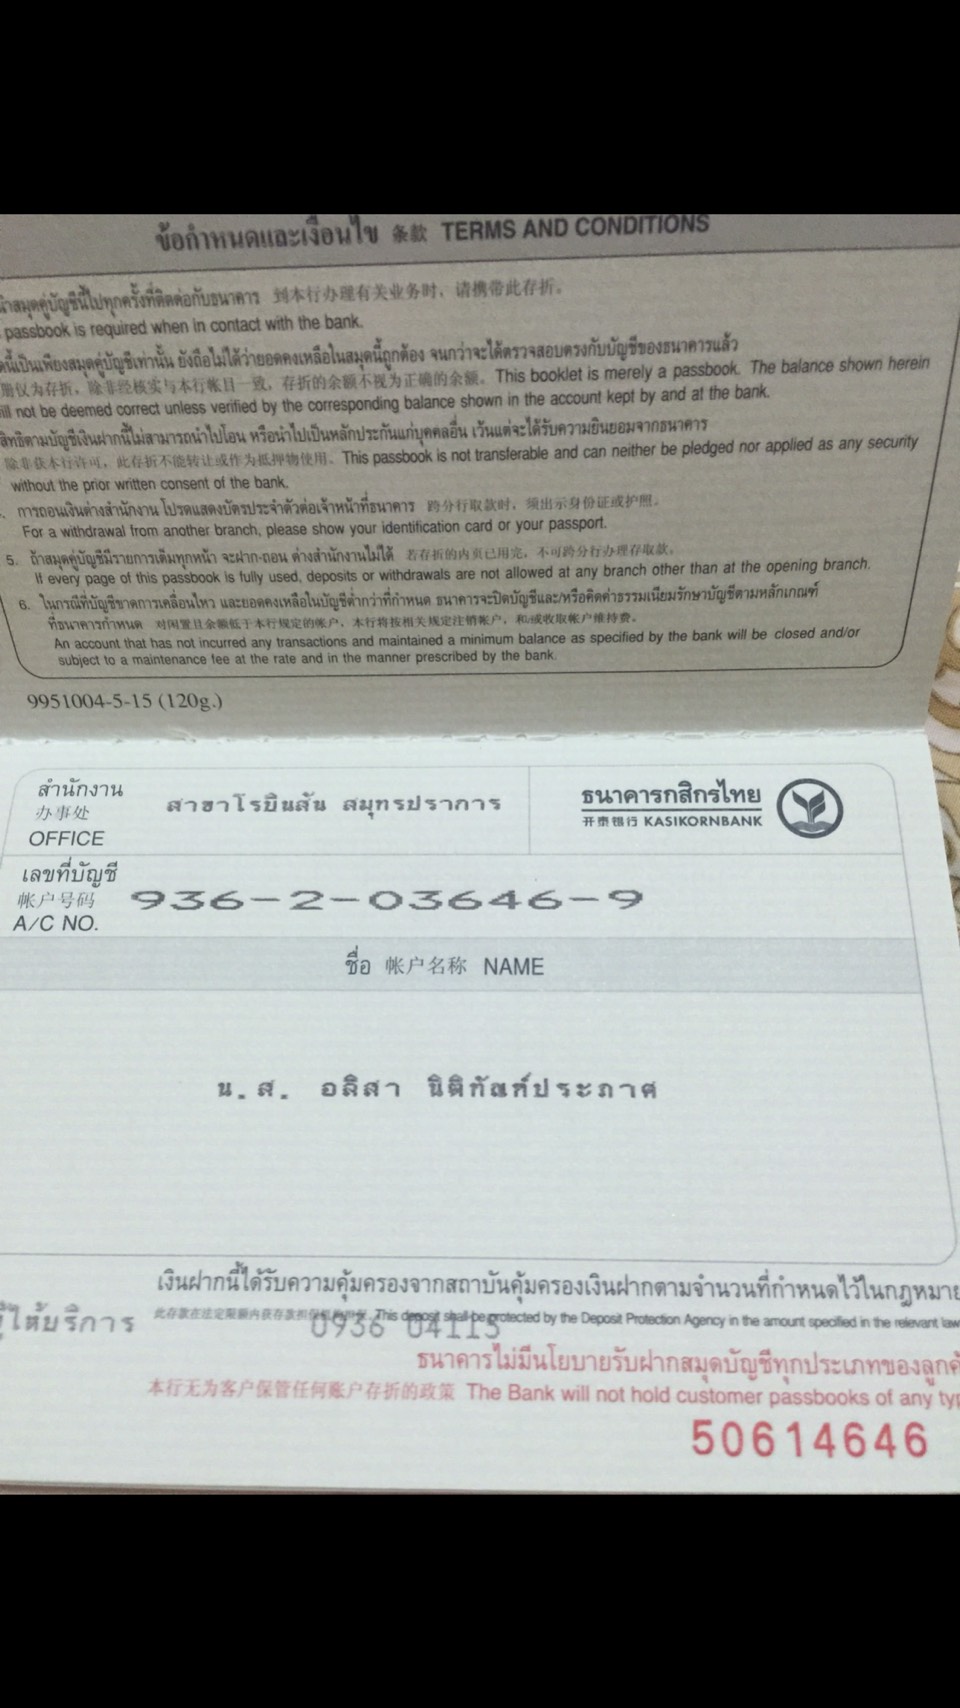 ข้อกำหนดและเงื่อนไข 条款 TERMS AND CONDITIONS
นำสมุดคู่บัญชีนี้ไปทุกครั้งที่ติดต่อกับธนาคาร 到本行办理有关业务时，请携带此存折。
passbook is required when in contact with the bank.
นี้เป็นเพียงสมุดคู่บัญชีเท่านั้น ยังถือไม่ได้ว่ายอดคงเหลือในสมุดนี้ถูกต้อง จนกว่าจะได้ตรวจสอบตรงกับบัญชีของธนาคารแล้ว
册仅为存折，除非经核实与本行帐目一致，存折的余额不视为正确的余额。This booklet is merely a passbook. The balance shown herein
ill not be deemed correct unless verified by the corresponding balance shown in the account kept by and at the bank.
สิทธิตามบัญชีเงินฝากนี้ไม่สามารถนำไปโอน หรือนำไปเป็นหลักประกันแก่บุคคลอื่น เว้นแต่จะได้รับความยินยอมจากธนาคาร
除非获本行许可，此存折不能转让或作为抵押物使用。This passbook is not transferable and can neither be pledged nor applied as any security
without the prior written consent of the bank.
. การถอนเงินต่างสำนักงาน โปรดแสดงบัตรประจำตัวต่อเจ้าหน้าที่ธนาคาร 跨分行取款时，须出示身份证或护照。
For a withdrawal from another branch, please show your identification card or your passport.
5. ถ้าสมุดคู่บัญชีมีรายการเต็มทุกหน้า จะฝาก-ถอน ต่างสำนักงานไม่ได้ 若存折的内页已用完，不可跨分行办理存取款。
If every page of this passbook is fully used, deposits or withdrawals are not allowed at any branch other than at the opening branch.
6. ในกรณีที่บัญชีขาดการเคลื่อนไหว และยอดคงเหลือในบัญชีต่ำกว่าที่กำหนด ธนาคารจะปิดบัญชีและ/หรือคิดค่าธรรมเนียมรักษาบัญชีตามหลักเกณฑ์
ที่ธนาคารกำหนด 对闲置且余额低于本行规定的帐户，本行将按相关规定注销帐户，和/或收取帐户维持费。
An account that has not incurred any transactions and maintained a minimum balance as specified by the bank will be closed and/or
subject to a maintenance fee at the rate and in the manner prescribed by the bank.
9951004-5-15 (120g.)
สำนักงาน
办事处
OFFICE
สาขาโรบินสัน สมุทรปราการ
ธนาคารกสิกรไทย
开泰银行 KASIKORNBANK
เลขที่บัญชี
帐户号码
A/C NO.
936-2-03646-9
ชื่อ 帐户名称 NAME
น.ส. อลิสา นิติทัณฑ์ประภาศ
เงินฝากนี้ได้รับความคุ้มครองจากสถาบันคุ้มครองเงินฝากตามจำนวนที่กำหนดไว้ในกฎหมาย
ให้บริการ
This deposit shall be protected by the Deposit Protection Agency in the amount specified in the relevant law
0936 04115
ธนาคารไม่มีนโยบายรับฝากสมุดบัญชีทุกประเภทของลูกค้
本行无为客户保管任何账户存折的政策 The Bank will not hold customer passbooks of any typ
50614646